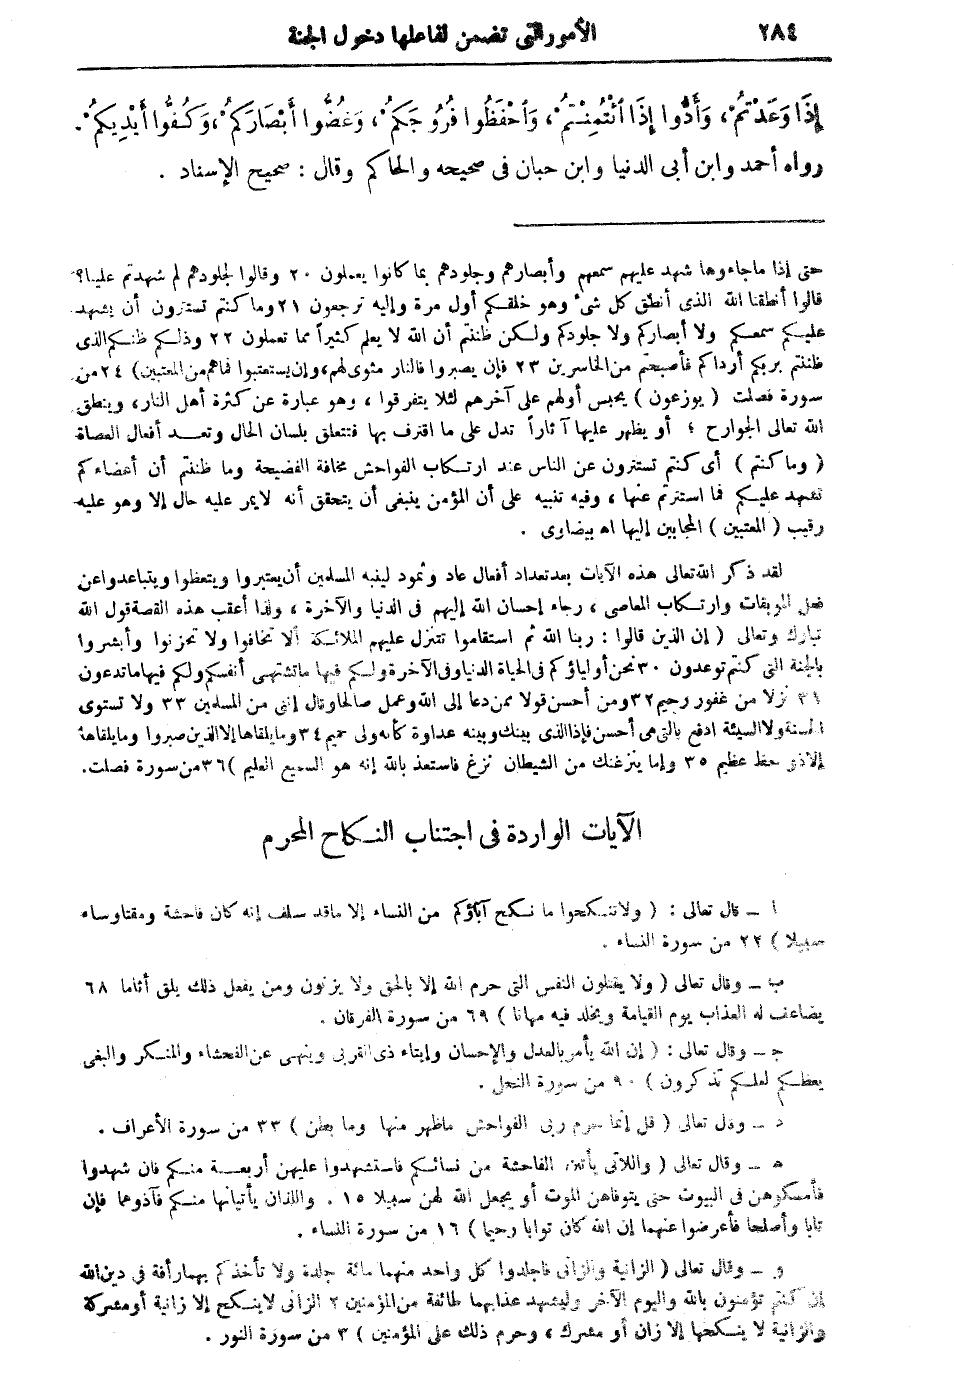 ٢٨٤ الأمور التى تضمن لفاعلها دخول الجنة
إِذَا وَعَدْتُمْ، وَأَدُّوا إِذَا ائْتُمِنْتُمْ، وَاحْفَظُوا فُرُوجَكُمْ، وَغُضُّوا أَبْصَارَكُمْ، وَكُفُّوا أَيْدِيكُمْ.
رواه أحمد وابن أبى الدنيا وابن حبان فى صحيحه والحاكم وقال : صحيح الإسناد .
حتى إذا ماجاءوها شهد عليهم سمعهم وأبصارهم وجلودهم بما كانوا يعملون ٢٠ وقالوا لجلودهم لم شهدتم علينا؟
قالوا أنطقنا الله الذى أنطق كل شىء وهو خلقكم أول مرة وإليه ترجعون ٢١ وما كنتم تستترون أن يشهد
عليكم سمعكم ولا أبصاركم ولا جلودكم ولكن ظننتم أن الله لا يعلم كثيراً مما تعملون ٢٢ وذلكم ظنكم الذى
ظننتم بربكم أرداكم فأصبحتم من الخاسرين ٢٣ فإن يصبروا فالنار مثوى لهم، وإن يستعتبوا فماهم من المعتبين) ٢٤ من
سورة فصلت ( يوزعون ) يحبس أولهم على آخرهم لئلا يتفرقوا ، وهو عبارة عن كثرة أهل النار، وينطق
الله تعالى الجوارح ؛ أو يظهر عليها آثاراً تدل على ما اقترف بها فتنطق بلسان الحال وتعد أفعال العصاة
( وما كنتم ) أى كنتم تستترون عن الناس عند ارتكاب الفواحش مخافة الفضيحة وما ظننتم أن أعضاءكم
تشهد عليكم فما استترتم عنها ، وفيه تنبيه على أن المؤمن ينبغى أن يتحقق أنه لايمر عليه حال إلا وهو عليه
رقيب ( المعتبين ) المجابين إليها اه بيضاوى .
لقد ذكر الله تعالى هذه الآيات بعد تعداد أفعال عاد وثمود لينبه المسلمين أن يعتبروا ويتعظوا ويتباعدوا عن
فعل الموبقات وارتكاب المعاصى ، رجاء إحسان الله إليهم فى الدنيا والآخرة ، ولذا أعقب هذه القصة قول الله
تبارك وتعالى ( إن الذين قالوا : ربنا الله ثم استقاموا تتنزل عليهم الملائكة ألا تخافوا ولا تحزنوا وأبشروا
بالجنة التى كنتم توعدون ٣٠ نحن أولياؤكم فى الحياة الدنيا وفى الآخرة ولكم فيها ماتشتهى أنفسكم ولكم فيها ماتدعون
٣١ نزلا من غفور رحيم ٣٢ ومن أحسن قولا ممن دعا إلى الله وعمل صالحا وقال إننى من المسلمين ٣٣ ولا تستوى
الحسنة ولا السيئة ادفع بالتى هى أحسن فإذا الذى بينك وبينه عداوة كأنه ولى حميم ٣٤ ومايلقاها إلا الذين صبروا ومايلقاها
إلا ذو حظ عظيم ٣٥ وإما ينزغنك من الشيطان نزغ فاستعذ بالله إنه هو السميع العليم )٣٦ من سورة فصلت.
الآيات الواردة فى اجتناب النكاح المحرم
ا ـ قال تعالى : ( ولاتنكحوا ما نكح آباؤكم من النساء إلا ماقد سلف إنه كان فاحشة ومقتا وساء
سبيلا ) ٢٢ من سورة النساء .
ب ـ وقال تعالى ( ولا يقتلون النفس التى حرم الله إلا بالحق ولا يزنون ومن يفعل ذلك يلق أثاما ٦٨
يضاعف له العذاب يوم القيامة ويخلد فيه مهانا ) ٦٩ من سورة الفرقان .
جـ ـ وقال تعالى : ( إن الله يأمر بالعدل والإحسان وإيتاء ذى القربى وينهى عن الفحشاء والمنكر والبغى
يعظكم لعلكم تذكرون ) ٩٠ من سورة النحل .
د ـ وقال تعالى ( قل إنما حرم ربى الفواحش ماظهر منها وما بطن ) ٣٣ من سورة الأعراف .
ه ـ وقال تعالى ( واللاتى يأتين الفاحشة من نسائكم فاستشهدوا عليهن أربعة منكم فان شهدوا
فأمسكوهن فى البيوت حتى يتوفاهن الموت أو يجعل الله لهن سبيلا ١٥ . واللذان يأتيانها منكم فآذوهما فإن
تابا وأصلحا فأعرضوا عنهما إن الله كان توابا رحيما ) ١٦ من سورة النساء .
و ـ وقال تعالى ( الزانية والزانى فاجلدوا كل واحد منهما مائة جلدة ولا تأخذكم بهما رأفة فى دين الله
إن كنتم تؤمنون بالله واليوم الآخر وليشهد عذابهما طائفة من المؤمنين ٢ الزانى لاينكح إلا زانية أو مشركة
والزانية لا ينكحها إلا زان أو مشرك ، وحرم ذلك على المؤمنين ) ٣ من سورة النور .